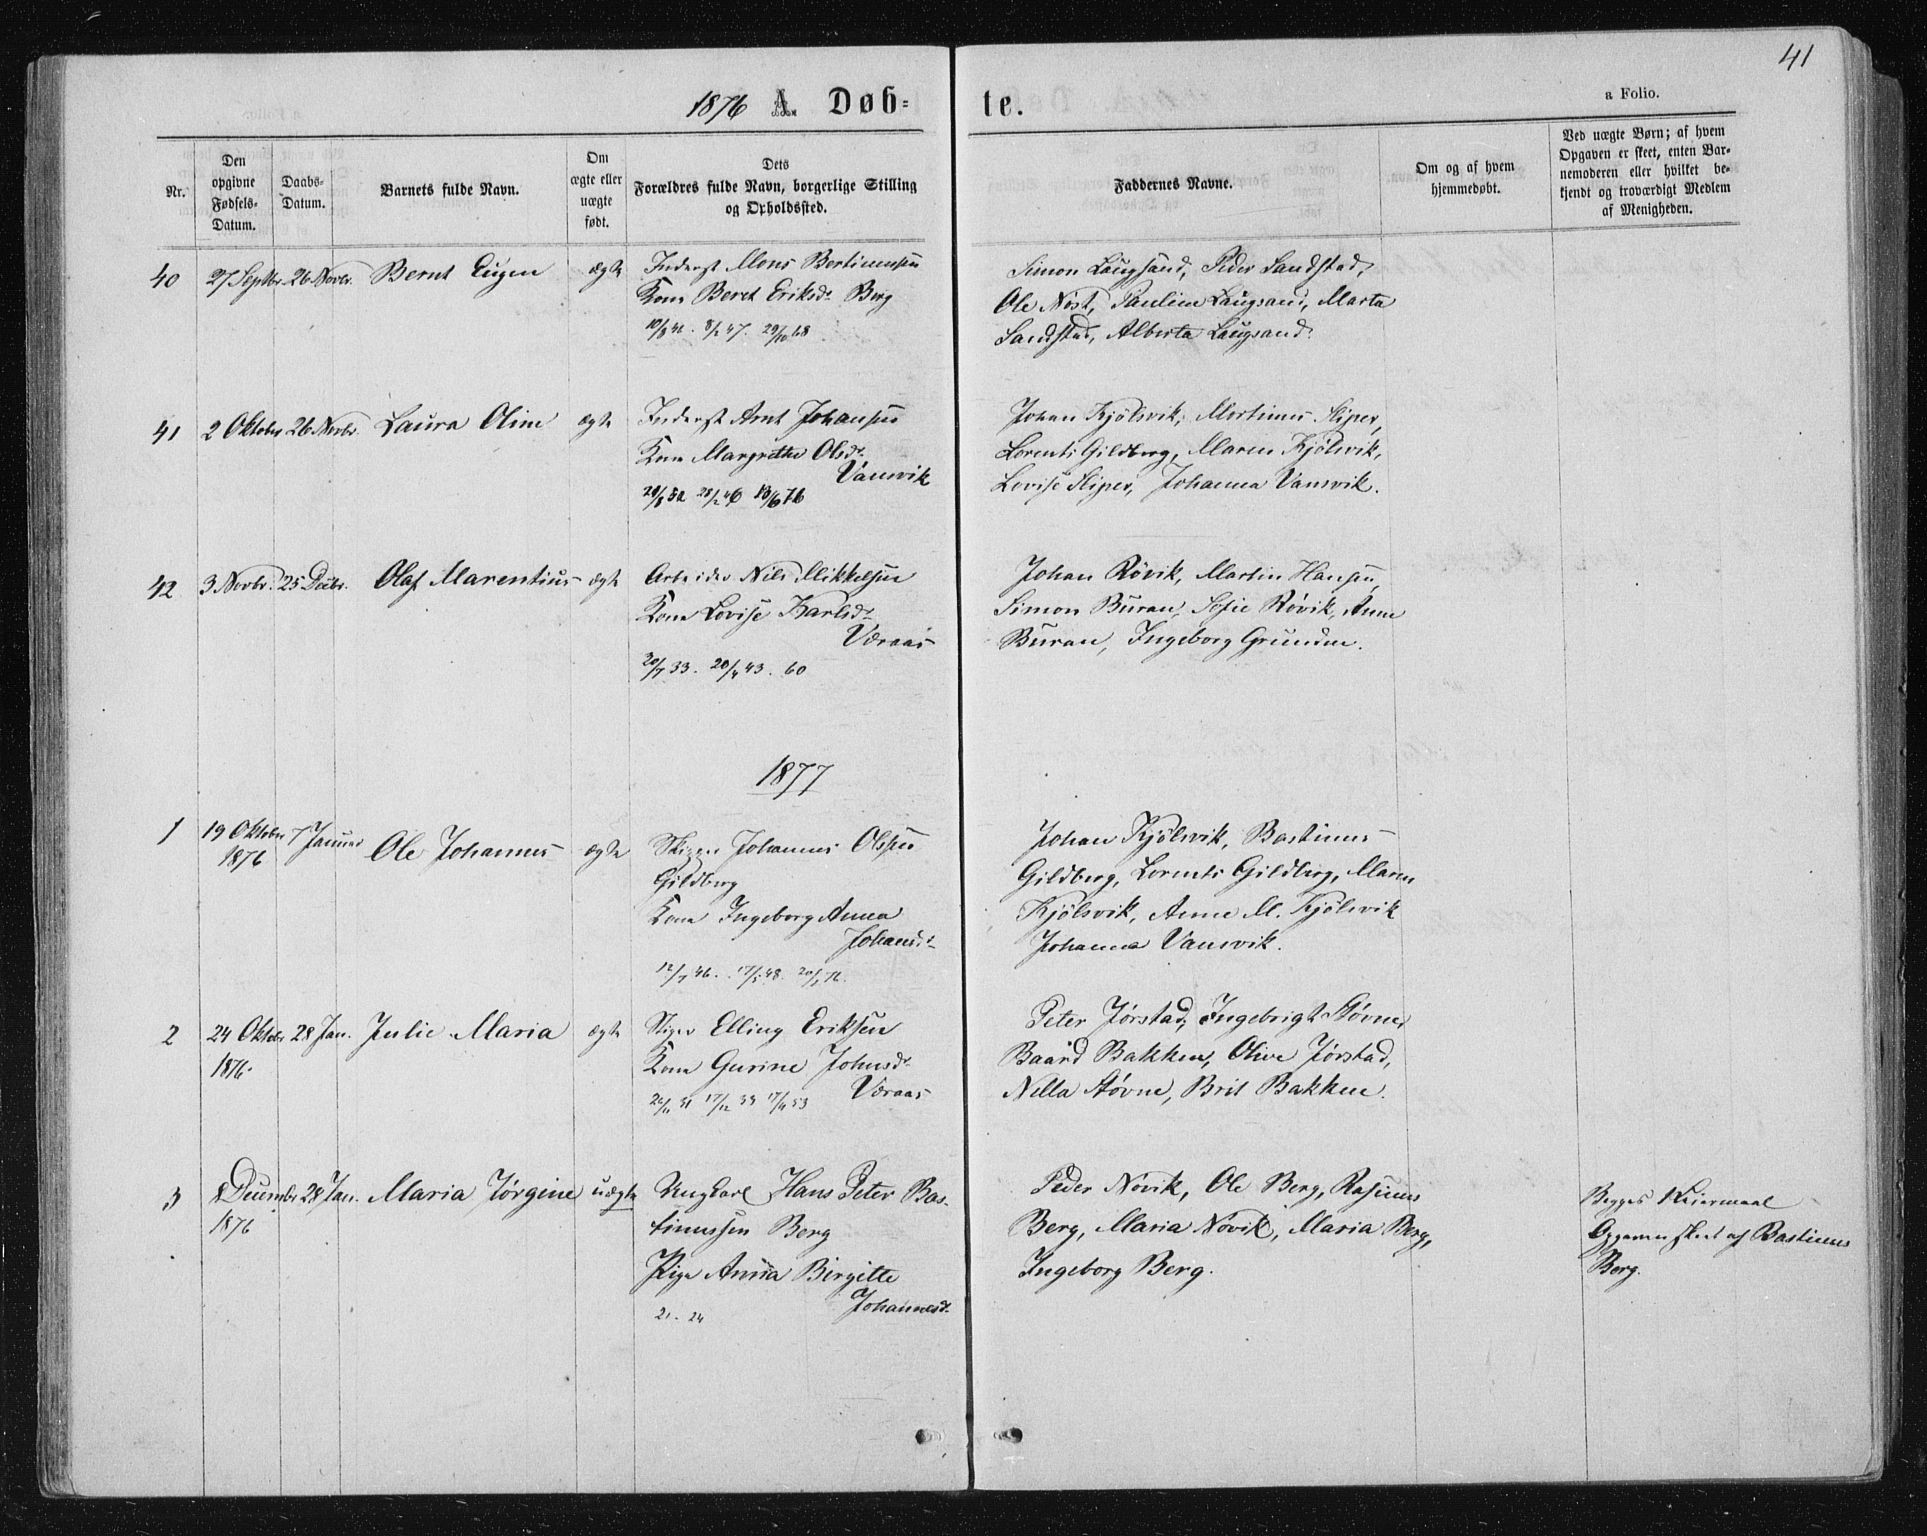 41
1876 A. Døb-
te.
a Folio.
Nr.
Den
opgivne
Fødsels-
Datum.
Daabs-
Datum.
Barnets fulde Navn.
Om
ægte eller
uægte
født.
Dets
Forældres fulde Navn, borgerlige Stilling
og Opholdssted.
Faddernes Navne.
Om og af hvem
hjemmedøbt.
Ved uægte Børn; af hvem
Opgaven er skeet, enten Bar-
nemoderen eller hvilket be-
kjendt og troværdigt Medlem
af Menigheden.
40 27 Septbr. 26 Novbr. Bernt Eugen ægte
Inderst Mons Bertinussen
Kone Beret Eriksd. Berg
29/10 68
Simon Laugsand, Peder Sandstad,
Ole Nøst, Pauline Laugsand, Marta
Sandstad, Alberta Laugsand.
41 2 Oktober 26 Novbr. Laura Oline ægte
Inderst Arnt Johansen
Kone Margrethe Olsdr.
Vansvik
28/2 46
Johan Kjølsvik, Mortinus Sliper,
Lorents Gildberg, Maren Kjølsvik,
Lovise Sliper, Johanna Vansvik.
42 3 Novbr. 25 Decbr. Olaf Marentius ægte
Arbeider Nils Mikkelsen
Kone Lovise Karlsdr.
Væraas
20/7 33. 20/4 43. 60
Johan Røvik, Martin Hansen,
Simon Buran, Sofie Røvik, Anne
Buran, Ingeborg Grunden.
1877
1 19 Oktober 7 Januar Ole Johannes ægte
1876
Johannes Olsen
Gildberg
Kone Ingeborg Anna
Johansd.
12/7 46. 17/5 48.
Johan Kjølsvik, Bastinus
Gildberg, Lorents Gildberg, Maren
Kjølsvik, Anne M. Kjølsvik
Johanna Vansvik.
2 24 Oktobr 28 Jan. Julie Maria ægte
1876.
Elling Eriksen
Kone Gurine Johnsdr.
Væraas
17/12 33
Peter Jørstad, Ingebrigt Støvne,
Baard Bakken, Olive Jørstad,
Nella Støvne, Brit Bakken.
3 8 Decembr 28 Jan. Maria Jørgine uægte
1876
Ungkarl Hans Peter Bas-
tinussen Berg
Pige Anna Birgitte
Johannesd.
21. 24
Peder Novik, Ole Berg, Rasmus
Berg, Maria Novik, Maria Berg,
Ingeborg Berg.
Begges Leiermaal
Opgaven skeet af Bastinus
Berg.